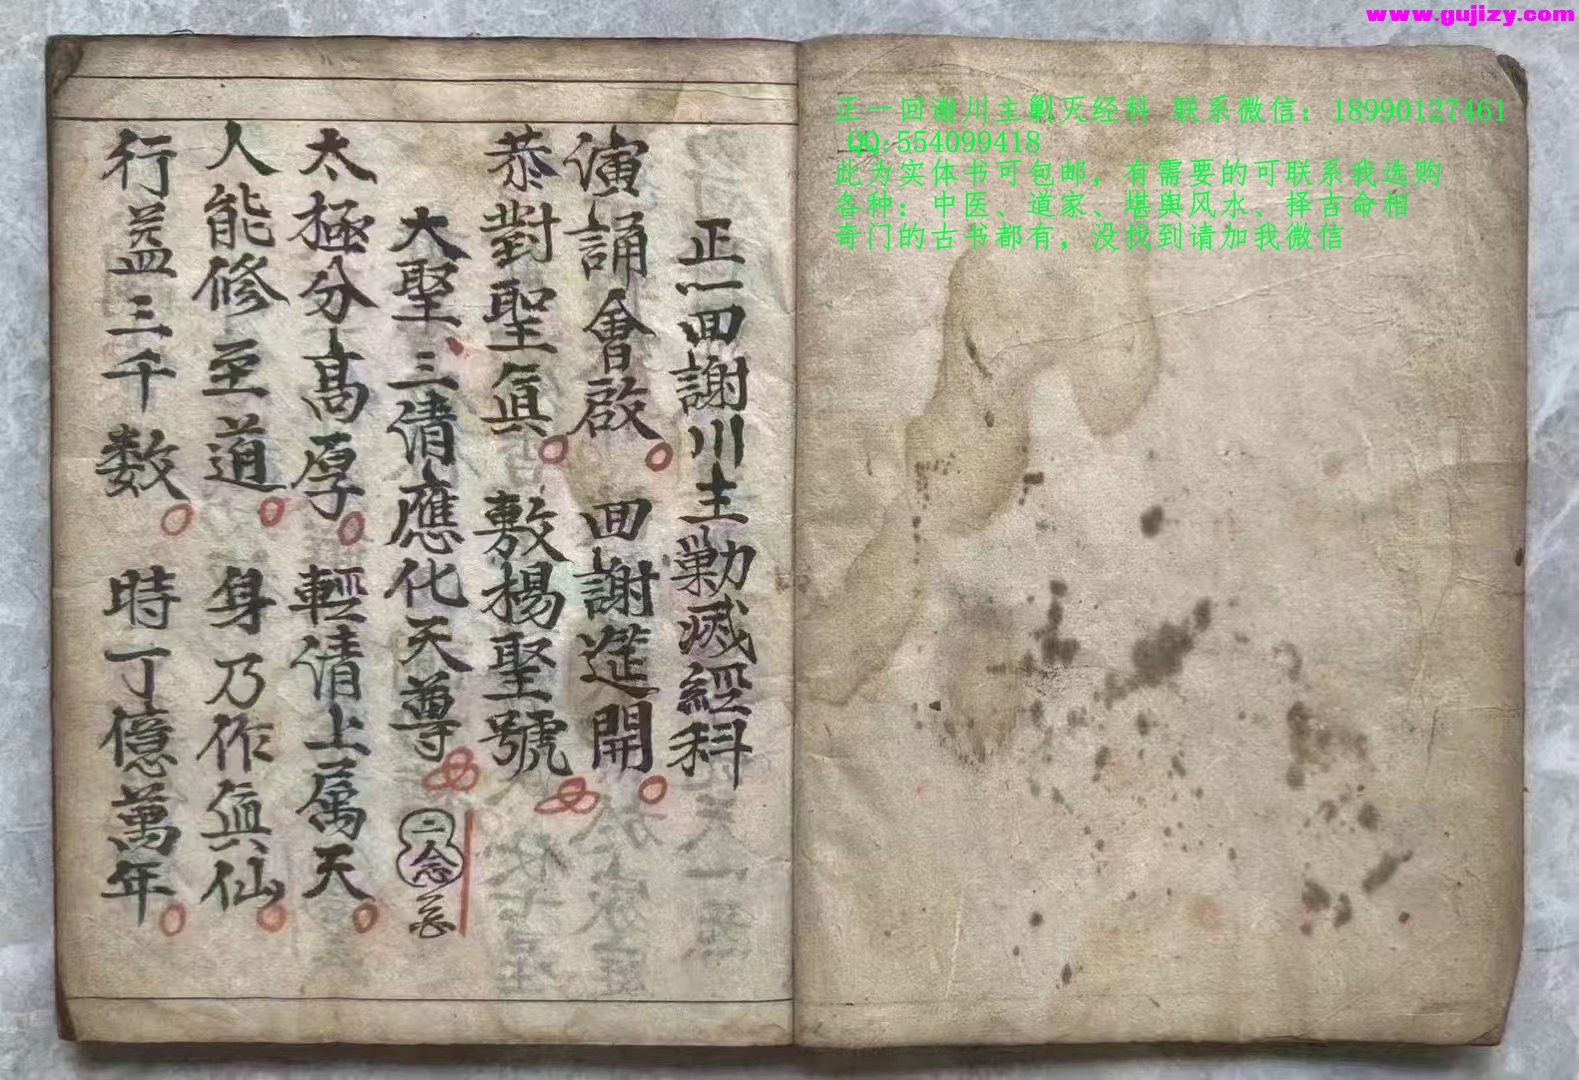 www.gujizy.com
正一回谢川主剿灭经科 联系微信：18990127461
QQ:554099418
此为实体书可包邮，有需要的可联系我选购
各种：中医、道家、堪舆风水、择吉命相
奇门的古书都有，没找到请加我微信
正一回謝川主勦滅經科
演誦會啟 回謝筵開
恭對聖真 敷楊聖號
大聖、三清應化天尊 二念
太極分高厚 輕清上属天
人能修至道 身乃作真仙
行益三千数 時丁億萬年